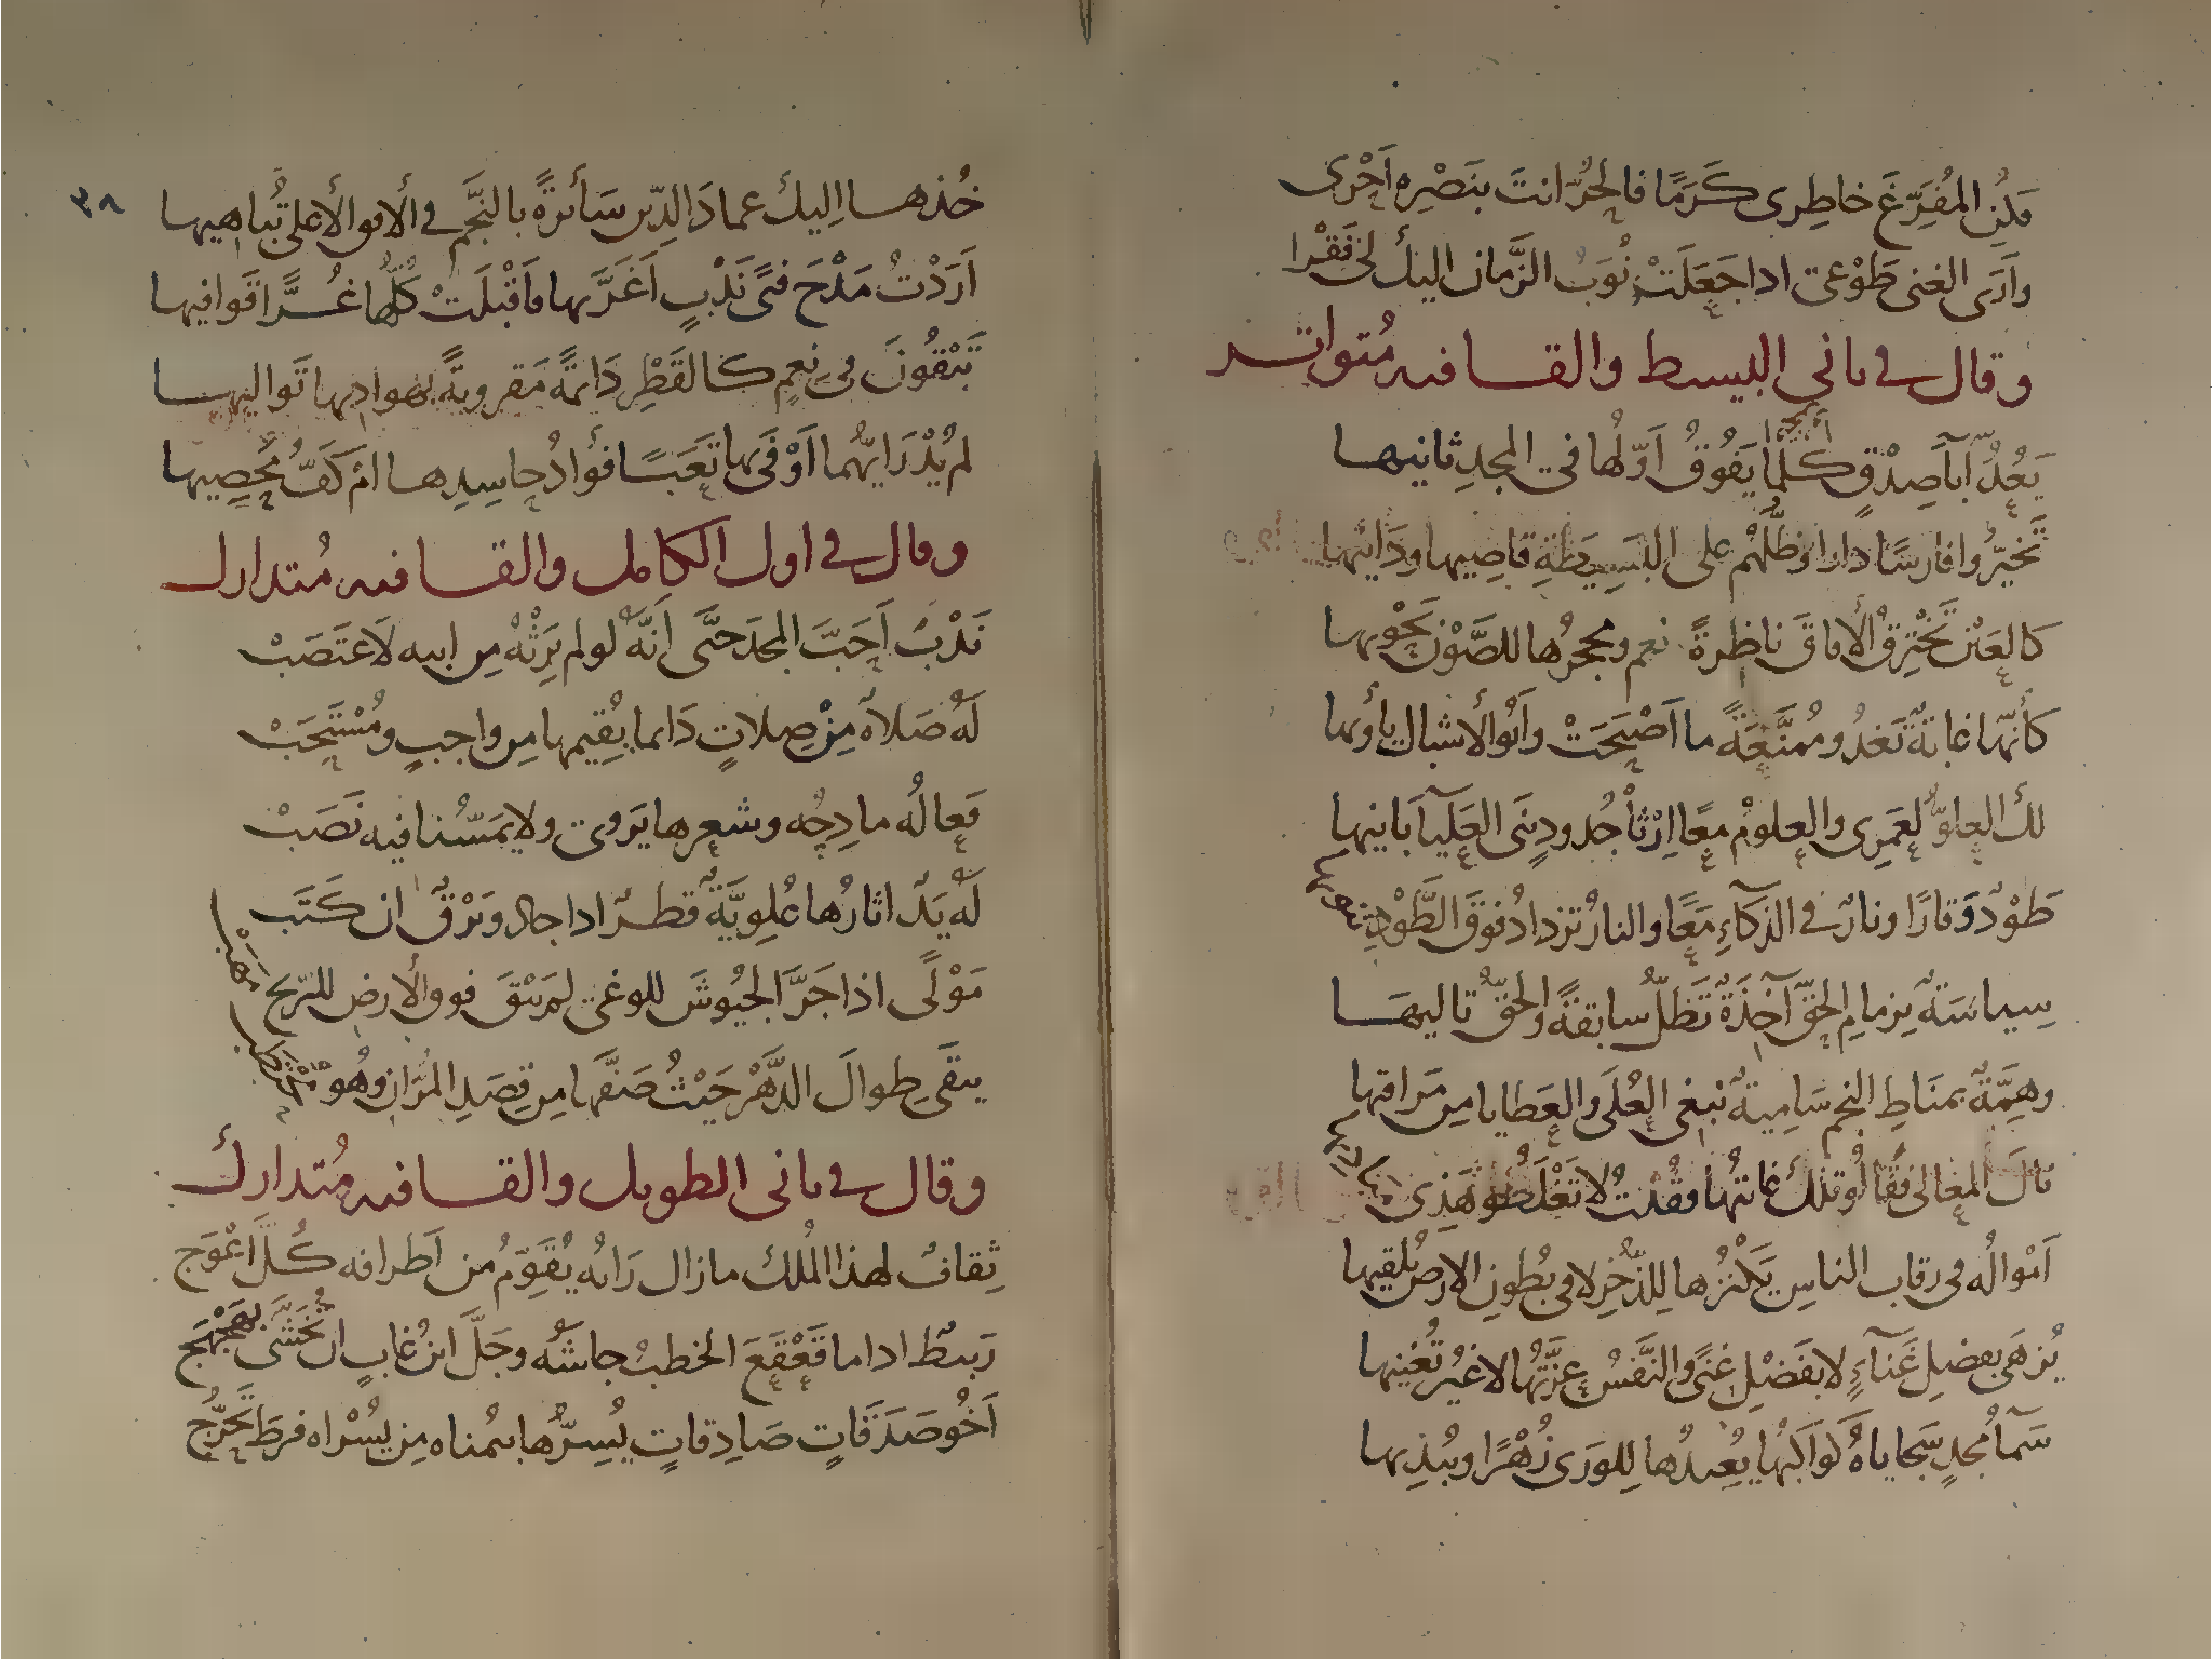 فكن المفرّغ خاطري كرمًا فالحرّ انت بنصره احرى
وارى الغنى طوعى اذا جعلت نوب الزمان اليك لى فقرا
وقال في ثاني البسيط والقافيه متواتر
يعدّ آباء صدقٍ كلما يفوق اوّلها في المجد ثانيها
تخيّروا فارسًا دارا وظلّهم على البسيطة قاصيها ودانيها
كالعين تخترق الآفاق ناظرةً نعم ومحجرها للصون يحويها
كأنّها غابة تغدو ممنّعةً ما اصبحت وابو الاشبال يأويها
لك العلوّ لعمري والعلوم معًا ارثا جدود بنى العلياء بانيها
طودٌ وقارًا ونارٌ في الذكاء معًا والنار تزداد فوق الطود
سياسة بزمام الحق آخذة تظلّ سابقةً والحقّ تاليها
وهمّةٌ بمناط النجم سامية تبغى العلى والعطايا من مراقيها
نال المعالى فقالوا تلك غايتها فقلت لا تغلطوا هذى
امواله في رقاب الناس يكنزها للذخر لا في بطون الارض يلقيها
يزهى بفضل غناءٍ لا بفضل غنىً والنفس عزّتها لا غير تغنيها
سماء مجدٍ سجاياه كواكبها يعيدها للورى زهرًا ويبديها
٣٨
خذها اليك عماد الدّين سائرةً بالنجم في الافق الاعلى تباهيها
اردت مدح فتًى ندبٍ اغرّ بها فاقبلت كلّها غرًّا قوافيها
تبقون في نعمٍ كالقطر دائمةً مقرونةً بهواديها تواليها
لم يُدْرَ ايّهما اوفى بها تعبًا فؤاد حاسدها ام كفّ محصيها
وقال في اول الكامل والقافيه متدارك
ندبٌ احبّ المجد حتّى انّه لو لم يرثه من ابيه لاغتصب
له صلاة من صلاتٍ دائما يقيمها من واجبٍ ومستحب
فعاله مادحه وشعرها يروى ولا يمسّنا فيه نصب
له يدٌ اثارها علويّة قطرٌ اذا جاد وبرقٌ ان كتب
مولًى اذا جرّ الجيوش للوغى لم يبق فوق الارض للريح مهب
يبقى طوال الدهر حيث صفّها من قصد المرّان وهو
وقال في ثاني الطويل والقافيه متدارك
ثقافٌ لهذا الملك ما زال رايه يقوّم من اطرافه كلّ اعوج
ربيط اذا ما قعقع الخطب جاشه وجلّ ابن غابٍ ان تخشّى بهجهج
اخو صدقاتٍ صادقاتٍ يسرّها بيمناه من يسراه فرط تحرّج